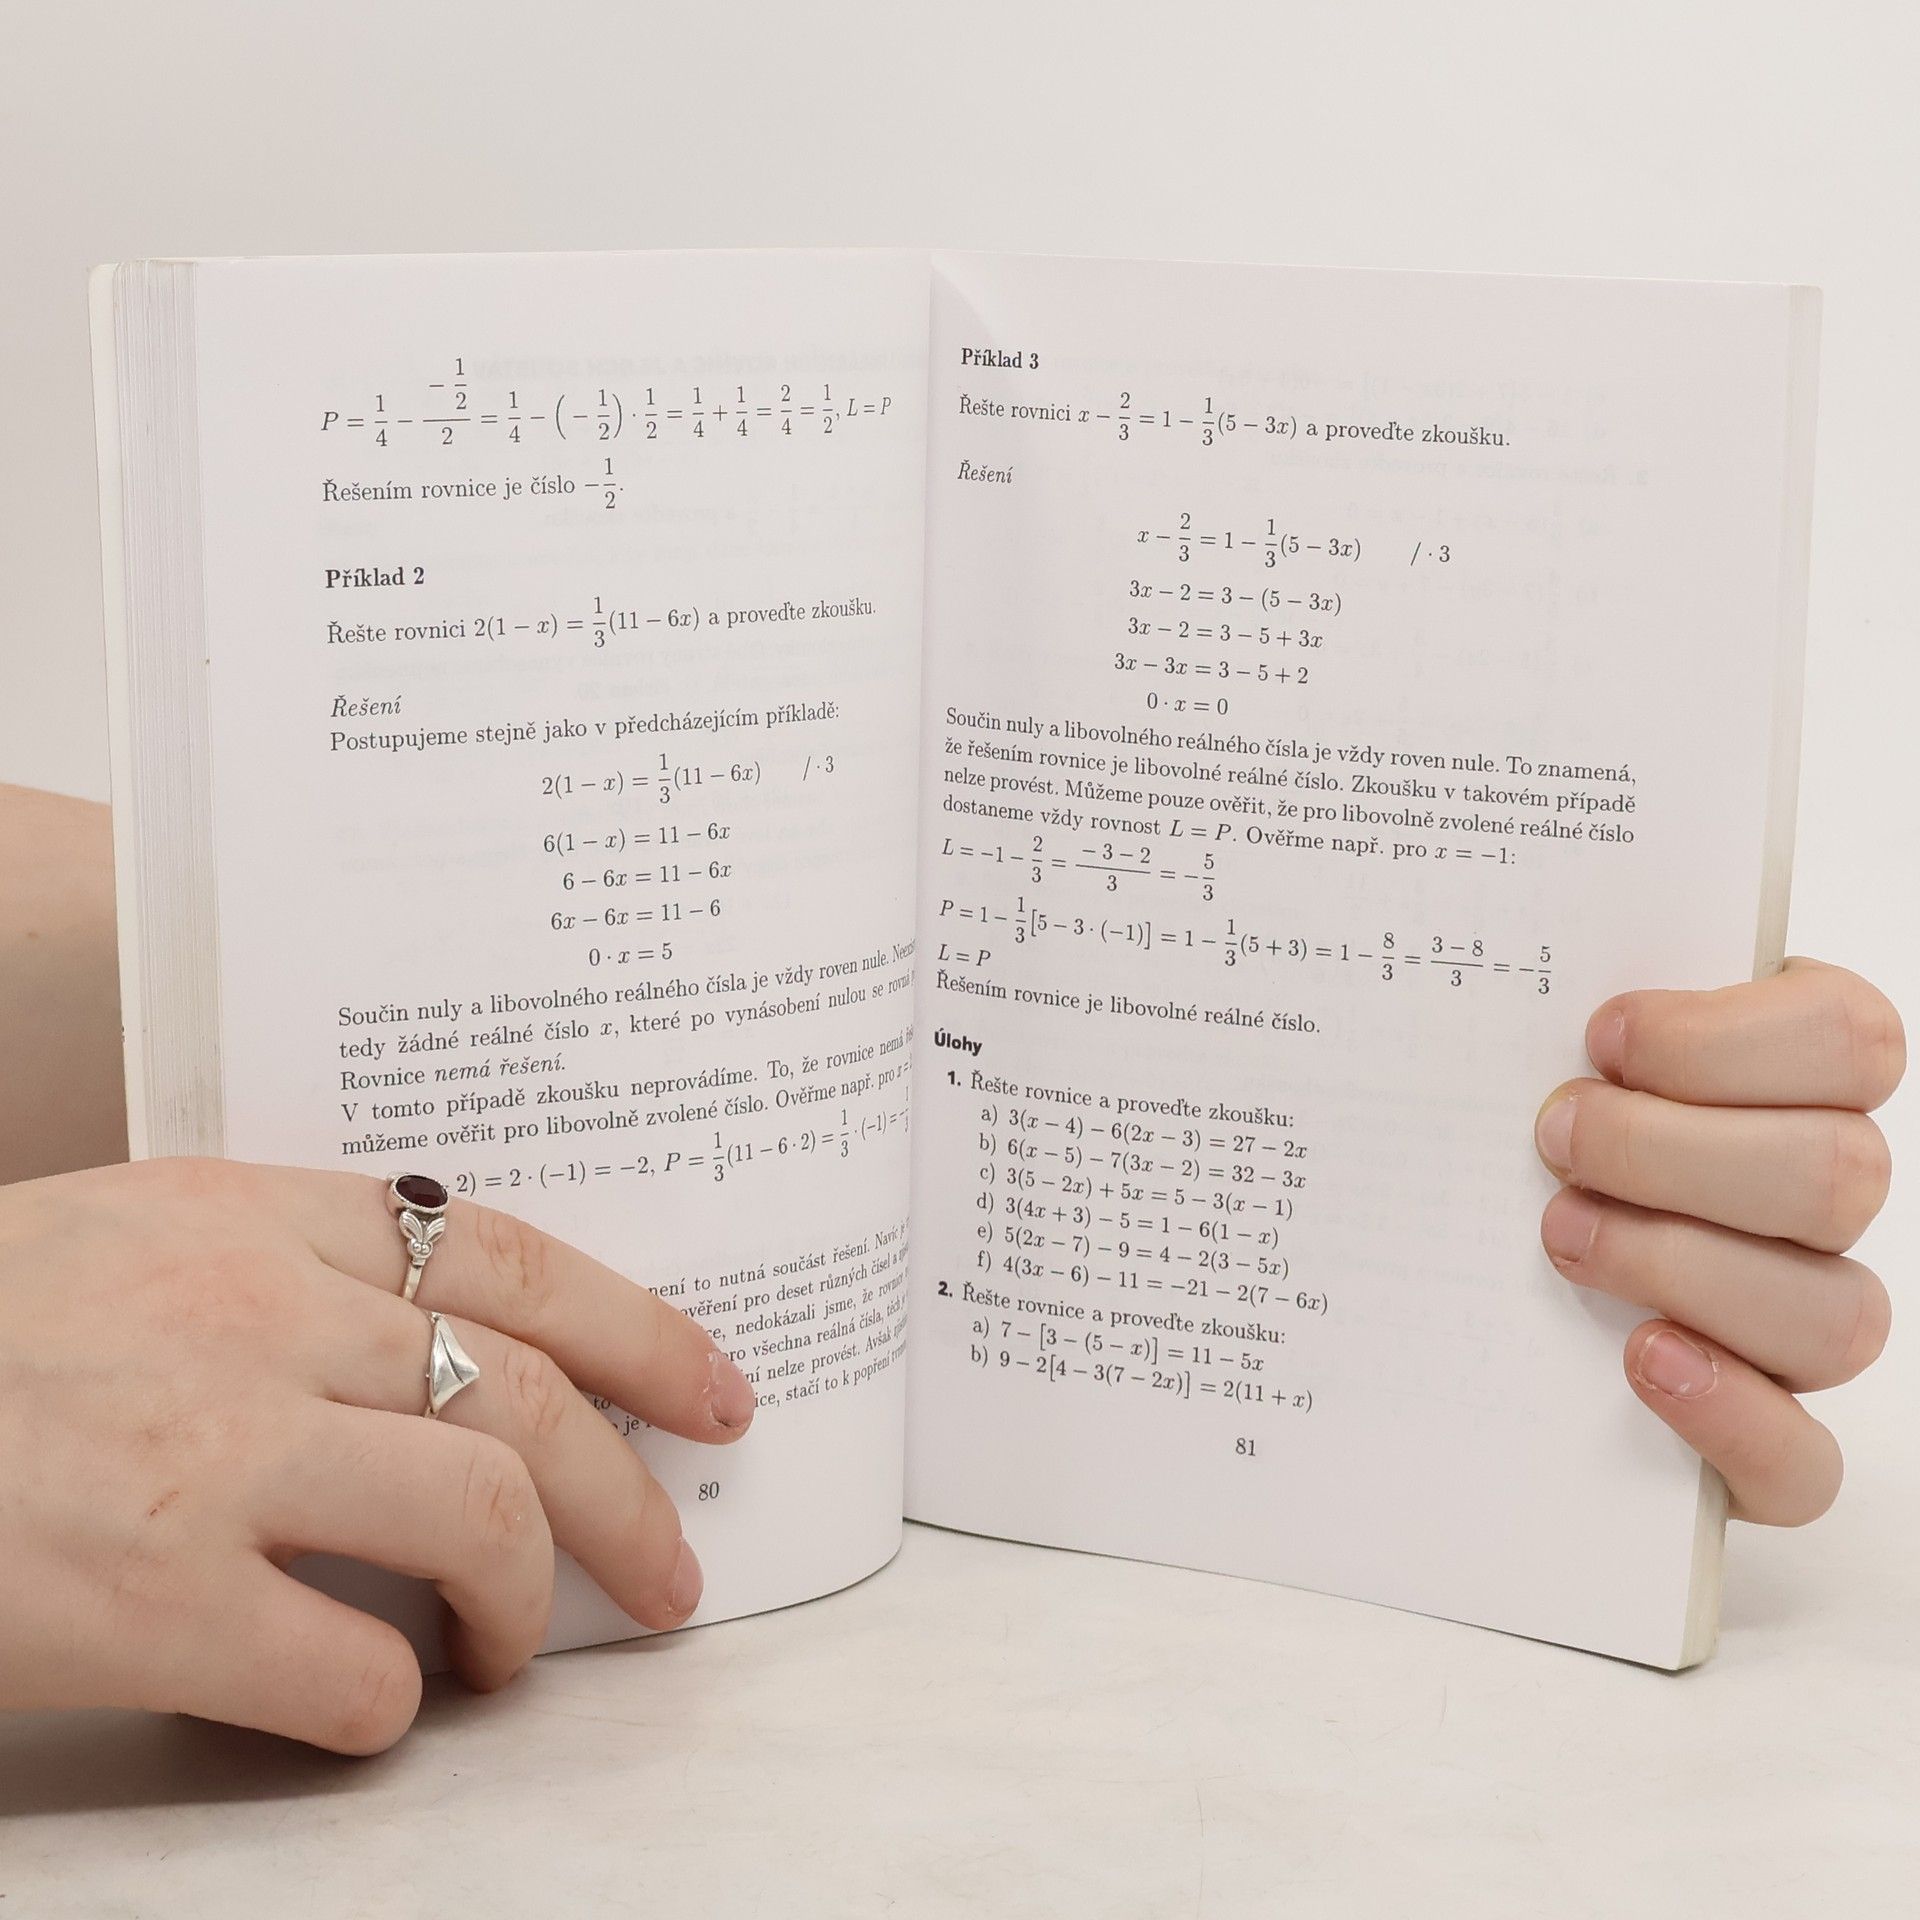 P = 1/4 − (−1/2)/2 = 1/4 − (−1/2) · 1/2 = 1/4 + 1/4 = 2/4 = 1/2, L = P
Řešením rovnice je číslo −1/2.
Příklad 2
Řešte rovnici 2(1 − x) = 1/3(11 − 6x) a proveďte zkoušku.
Řešení
Postupujeme stejně jako v předcházejícím příkladě:
2(1 − x) = 1/3(11 − 6x) / · 3
6(1 − x) = 11 − 6x
6 − 6x = 11 − 6x
6x − 6x = 11 − 6
0 · x = 5
Součin nuly a libovolného reálného čísla je vždy roven nule.
tedy žádné reálné číslo x, které po vynásobení nulou se rovná
Rovnice nemá řešení.
V tomto případě zkoušku neprovádíme. To, že rovnice nemá
můžeme ověřit pro libovolně zvolené číslo. Ověřme např. pro x =
2) = 2 · (−1) = −2, P = 1/3(11 − 6 · 2) = 1/3 · (−1) = −1/3
není to nutná součást řešení. Navíc je
ověření pro deset různých čísel a
nedokázali jsme, že rovnice
všechna reálná čísla, těch je
nelze provést. Avšak
stačí to k popření
to
je
80
Příklad 3
Řešte rovnici x − 2/3 = 1 − 1/3(5 − 3x) a proveďte zkoušku.
Řešení
x − 2/3 = 1 − 1/3(5 − 3x) / · 3
3x − 2 = 3 − (5 − 3x)
3x − 2 = 3 − 5 + 3x
3x − 3x = 3 − 5 + 2
0 · x = 0
Součin nuly a libovolného reálného čísla je vždy roven nule. To znamená,
že řešením rovnice je libovolné reálné číslo. Zkoušku v takovém případě
nelze provést. Můžeme pouze ověřit, že pro libovolně zvolené reálné číslo
dostaneme vždy rovnost L = P. Ověřme např. pro x = −1:
L = −1 − 2/3 = (−3 − 2)/3 = −5/3
P = 1 − 1/3[5 − 3 · (−1)] = 1 − 1/3(5 + 3) = 1 − 8/3 = (3 − 8)/3 = −5/3
L = P
Řešením rovnice je libovolné reálné číslo.
Úlohy
1. Řešte rovnice a proveďte zkoušku:
a) 3(x − 4) − 6(2x − 3) = 27 − 2x
b) 6(x − 5) − 7(3x − 2) = 32 − 3x
c) 3(5 − 2x) + 5x = 5 − 3(x − 1)
d) 3(4x + 3) − 5 = 1 − 6(1 − x)
e) 5(2x − 7) − 9 = 4 − 2(3 − 5x)
f) 4(3x − 6) − 11 = −21 − 2(7 − 6x)
2. Řešte rovnice a proveďte zkoušku:
a) 7 − [3 − (5 − x)] = 11 − 5x
b) 9 − 2[4 − 3(7 − 2x)] = 2(11 + x)
81